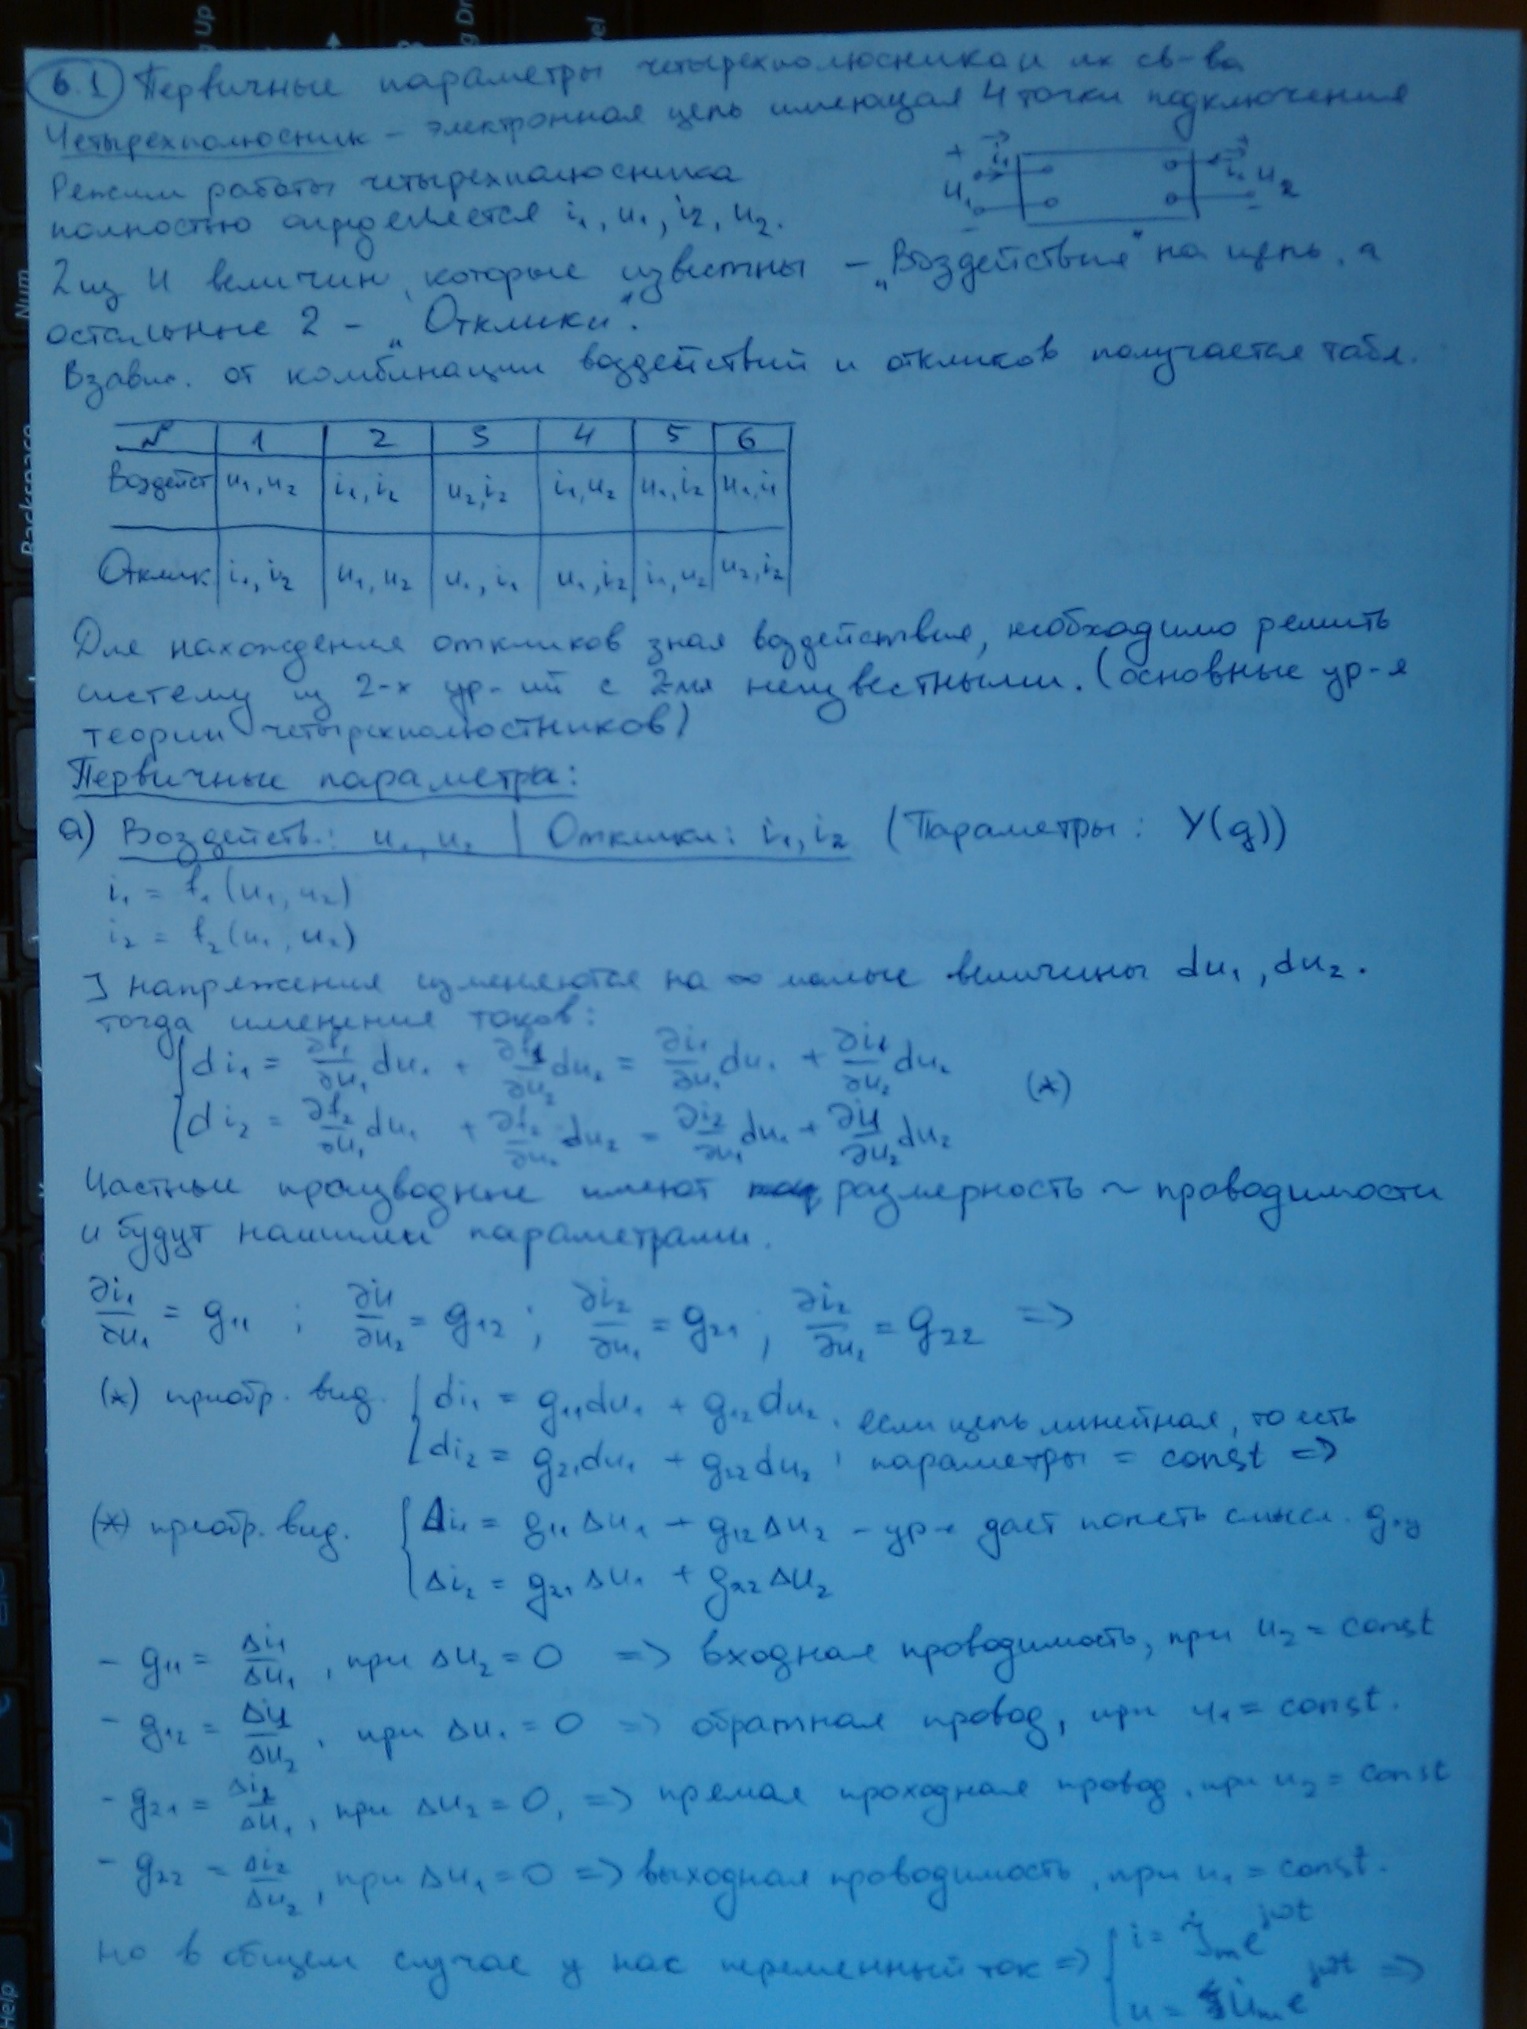 6.1 Первичные параметры четырехполюсника и их св-ва
Четырехполюсник – электронная цепь имеющая 4 точки подключения
Режим работы четырехполюсника
полностью определяется i₁, u₁, i₂, u₂.
+ i₁ i₂ u₁ u₂ - -
2 из 4 величин, которые известны – „Воздействия" на цепь, а
остальные 2 – „Отклики".
В завис. от комбинации воздействий и откликов получается табл.
№ 1 2 3 4 5 6
Воздейст u₁,u₂ i₁,i₂ u₂,i₂ i₁,u₂ u₁,i₂ u₁,i₁
Отклик i₁,i₂ u₁,u₂ u₁,i₁ u₁,i₂ i₁,u₂ u₂,i₂
Для нахождения откликов зная воздействие, необходимо решить
систему из 2-х ур-ий с 2мя неизвестными. (основные ур-я
теории четырехполюстников)
Первичные параметры:
а) Воздейств.: u₁, u₂ | Отклики: i₁, i₂ (Параметры: Y(g))
i₁ = f₁(u₁, u₂)
i₂ = f₂(u₁, u₂)
] напряжения изменяются на ∞ малые величины du₁, du₂.
тогда имения токов:
{ di₁ = ∂f₁/∂u₁ du₁ + ∂f₁/∂u₂ du₂ = ∂i₁/∂u₁ du₁ + ∂i₁/∂u₂ du₂ (*)
di₂ = ∂f₂/∂u₁ du₁ + ∂f₂/∂u₂ du₂ = ∂i₂/∂u₁ du₁ + ∂i₁/∂u₂ du₂
Частные производные имеют размерность ~ проводимости
и будут нашими параметрами.
∂i₁/∂u₁ = g₁₁ ; ∂i₁/∂u₂ = g₁₂ ; ∂i₂/∂u₁ = g₂₁ ; ∂i₂/∂u₂ = g₂₂ =>
(*) приобр. вид. { di₁ = g₁₁du₁ + g₁₂du₂ , если цепь линейная, то есть
di₂ = g₂₁du₁ + g₂₂du₂ параметры = const =>
(*) приобр. вид. { Δi₁ = g₁₁Δu₁ + g₁₂Δu₂ – ур-е дает понять смысл
Δi₂ = g₂₁Δu₁ + g₂₂Δu₂
- g₁₁ = Δi₁/Δu₁, при Δu₂ = 0 => входная проводимость, при u₂ = const
- g₁₂ = Δi₁/Δu₂, при Δu₁ = 0 => обратная провод, при u₁ = const.
- g₂₁ = Δi₂/Δu₁, при Δu₂ = 0, => прямая проходная провод, при u₂ = const
- g₂₂ = Δi₂/Δu₂, при Δu₁ = 0 => выходная проводимость, при u₁ = const.
но в общем случае у нас переменный ток => { i = J̇ₘe^jωt
u = U̇ₘe^jωt =>
Num
Backspace
Help